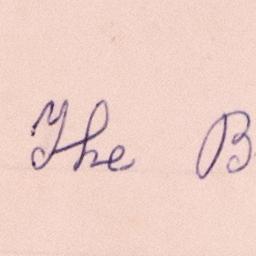 The B